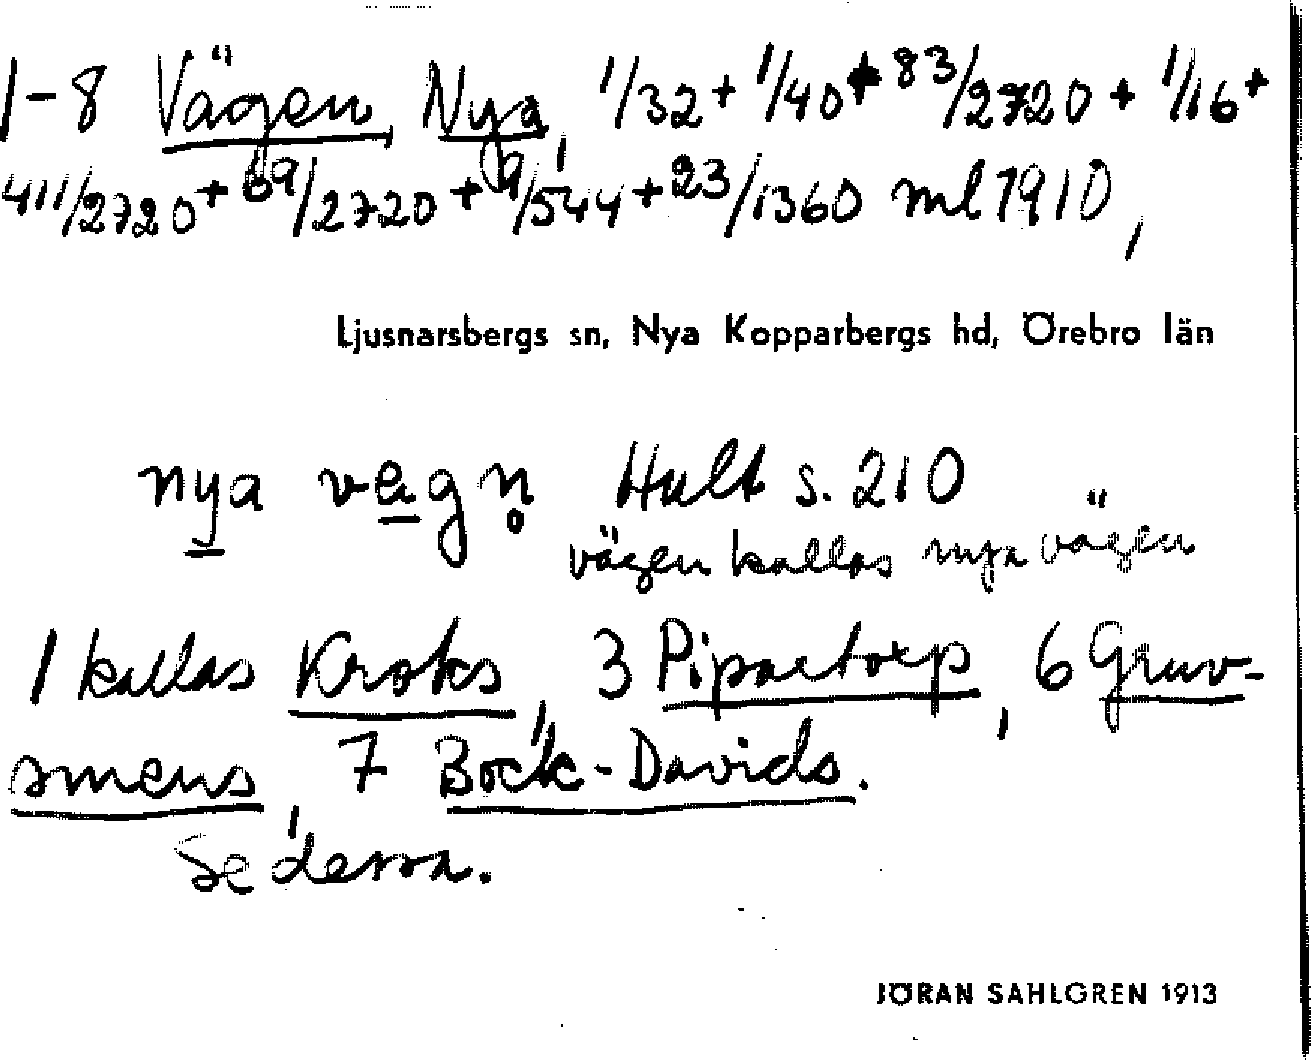 1-8 Vägen, Nya, 1/32 + 1/40 + 83/2720 + 1/16 +
411/2720 + 69/2720 + 9/544 + 23/1360 ml 1910,
Ljusnarsbergs sn, Nya Kopparbergs hd, Örebro län
nya vägn̥ Hult s. 210
vägen kallas nya vägen
1 kallas Kroks, 3 Pipartorp, 6 Gruv-
smens, 7 Bock-Davids.
Se dessa.
JÖRAN SAHLGREN 1913